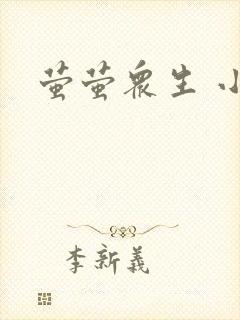 萤萤众生 小
李新义